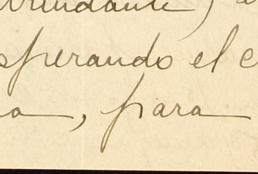 rrendante) e
sperando el c
a, para